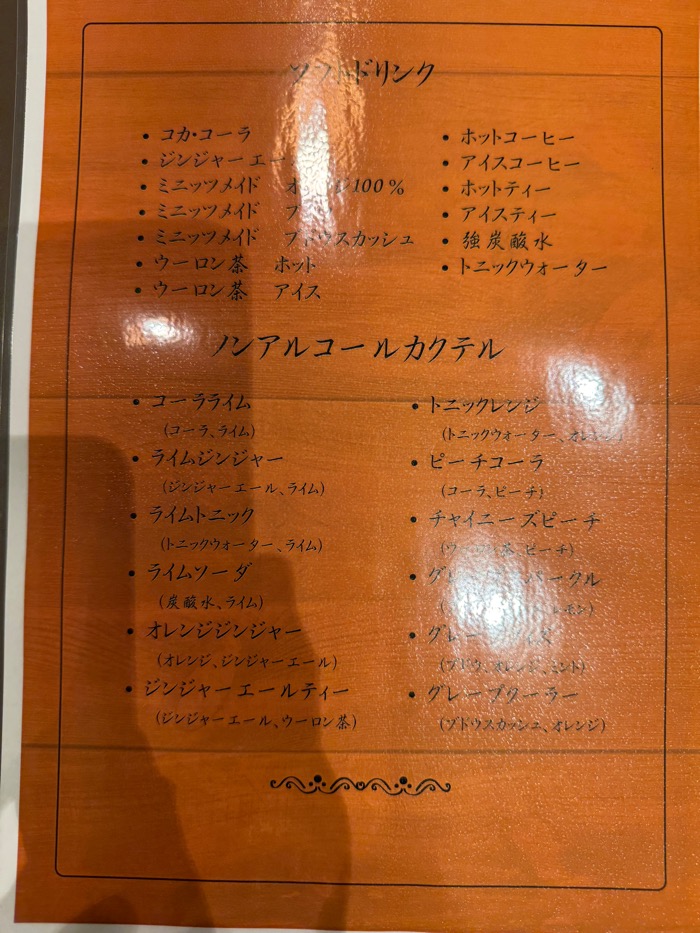 ソフトドリンク
・コカ・コーラ
・ジンジャーエー
・ミニッツメイド 100%
・ミニッツメイド
・ミニッツメイド ブドウスカッシュ
・ウーロン茶 ホット
・ウーロン茶 アイス
・ホットコーヒー
・アイスコーヒー
・ホットティー
・アイスティー
・強炭酸水
・トニックウォーター
ノンアルコールカクテル
・コーラライム
(コーラ、ライム)
・ライムジンジャー
(ジンジャーエール、ライム)
・ライムトニック
(トニックウォーター、ライム)
・ライムソーダ
(炭酸水、ライム)
・オレンジジンジャー
(オレンジ、ジンジャーエール)
・ジンジャーエールティー
(ジンジャーエール、ウーロン茶)
・トニックレンジ
(トニックウォーター、オレンジ)
・ピーチコーラ
(コーラ、ピーチ)
・チャイニーズピーチ
(ウーロン茶、ピーチ)
・
レモン)
・
(ブドウ、オレンジ、ミント)
・グレープクーラー
(ブドウスカッシュ、オレンジ)